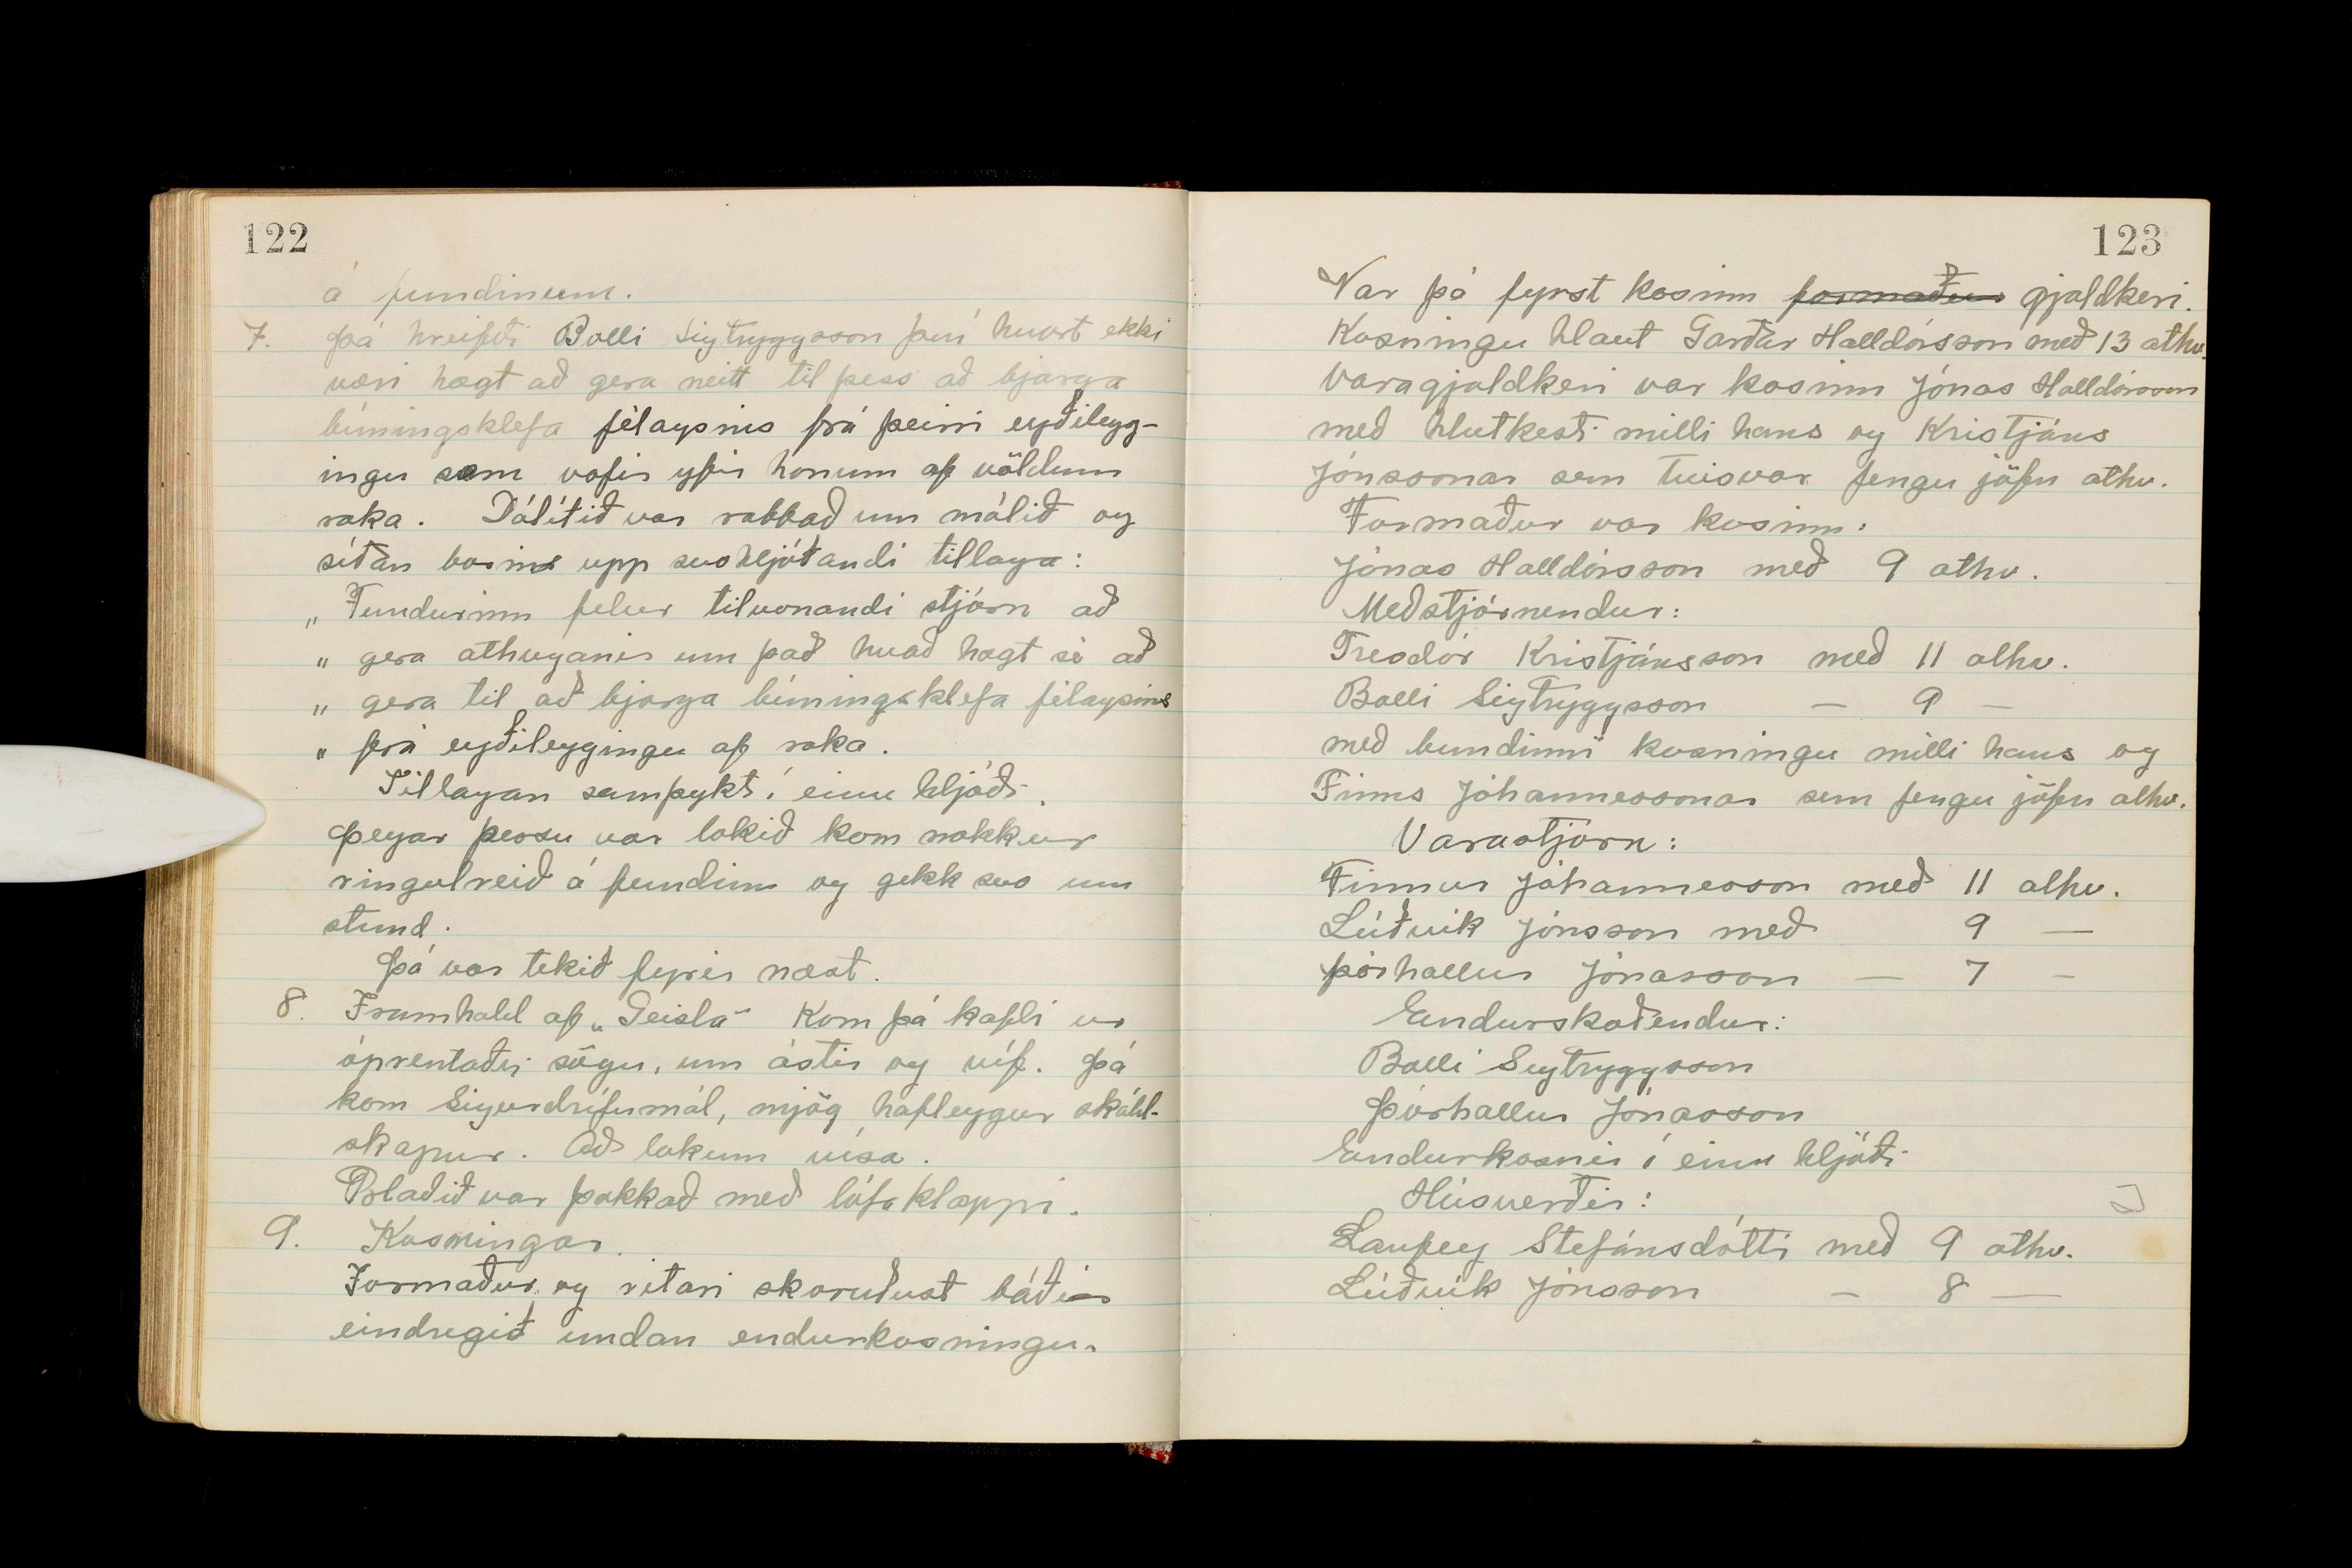 122
á fundinum.
7. Þá hreifði Bolli Sigtryggsson því hvort ekki
væri hægt að gera neitt til þess að bjarga
búningsklefa félagsins frá þeirri eyðilegg-
ingu sem vofir yfir honum af völdum
raka. Dálítið var rabbað um málið og
síðan borin upp svohljóðandi tillaga:
„ Fundurinn felur tilvonandi stjórn að
„ gera athuganir um það hvað hægt sé að
„ gera til að bjarga búningsklefa félagsins
„ frá eyðileggingu af raka.
Tillagan samþykt í einu hljóði.
Þegar þessu var lokið kom nokkur
ringulreið á fundinn og gekk svo um
stund.
Þá var tekið fyrir næst.
8. Framhald af „Geisla" Kom þá kafli úr
óprentaðri sögu, um ástir og víf. Þá
kom Sigurdrífumál, mjög hafleygur skáld-
skapur. Að lokum vísa.
Blaðið var þakkað með lófaklappi.
9. Kosningar.
Formaður og ritari skoruðust báðir
eindregið undan endurkosningu.
123
Var þá fyrst kosinn formaður gjaldkeri.
Kosningu hlaut Garðar Halldórsson með 13 athv.
Varagjaldkeri var kosinn Jónas Halldórsson
með hlutkesti milli hans og Kristjáns
Jónssonar sem tvisvar fengu jöfn athv.
Formaður var kosinn:
Jónas Halldórsson með 9 athv.
Meðstjórnendur:
Treodór Kristjánsson með 11 athv.
Bolli Sigtryggsson — 9 —
með bundinni kosningu milli hans og
Finns Jóhannessonar sem fengu jöfn athv.
Varastjórn:
Finnur Jóhannesson með 11 athv.
Lúðvik Jónsson með 9 —
Þórhallur Jónasson — 7 —
Endurskoðendur:
Bolli Sigtryggsson
Þórhallur Jónasson
Endurkosnir í einu hljóði
Húsverðir:
Laufey Stefánsdótti með 9 athv.
Lúðvik Jónsson — 8 —